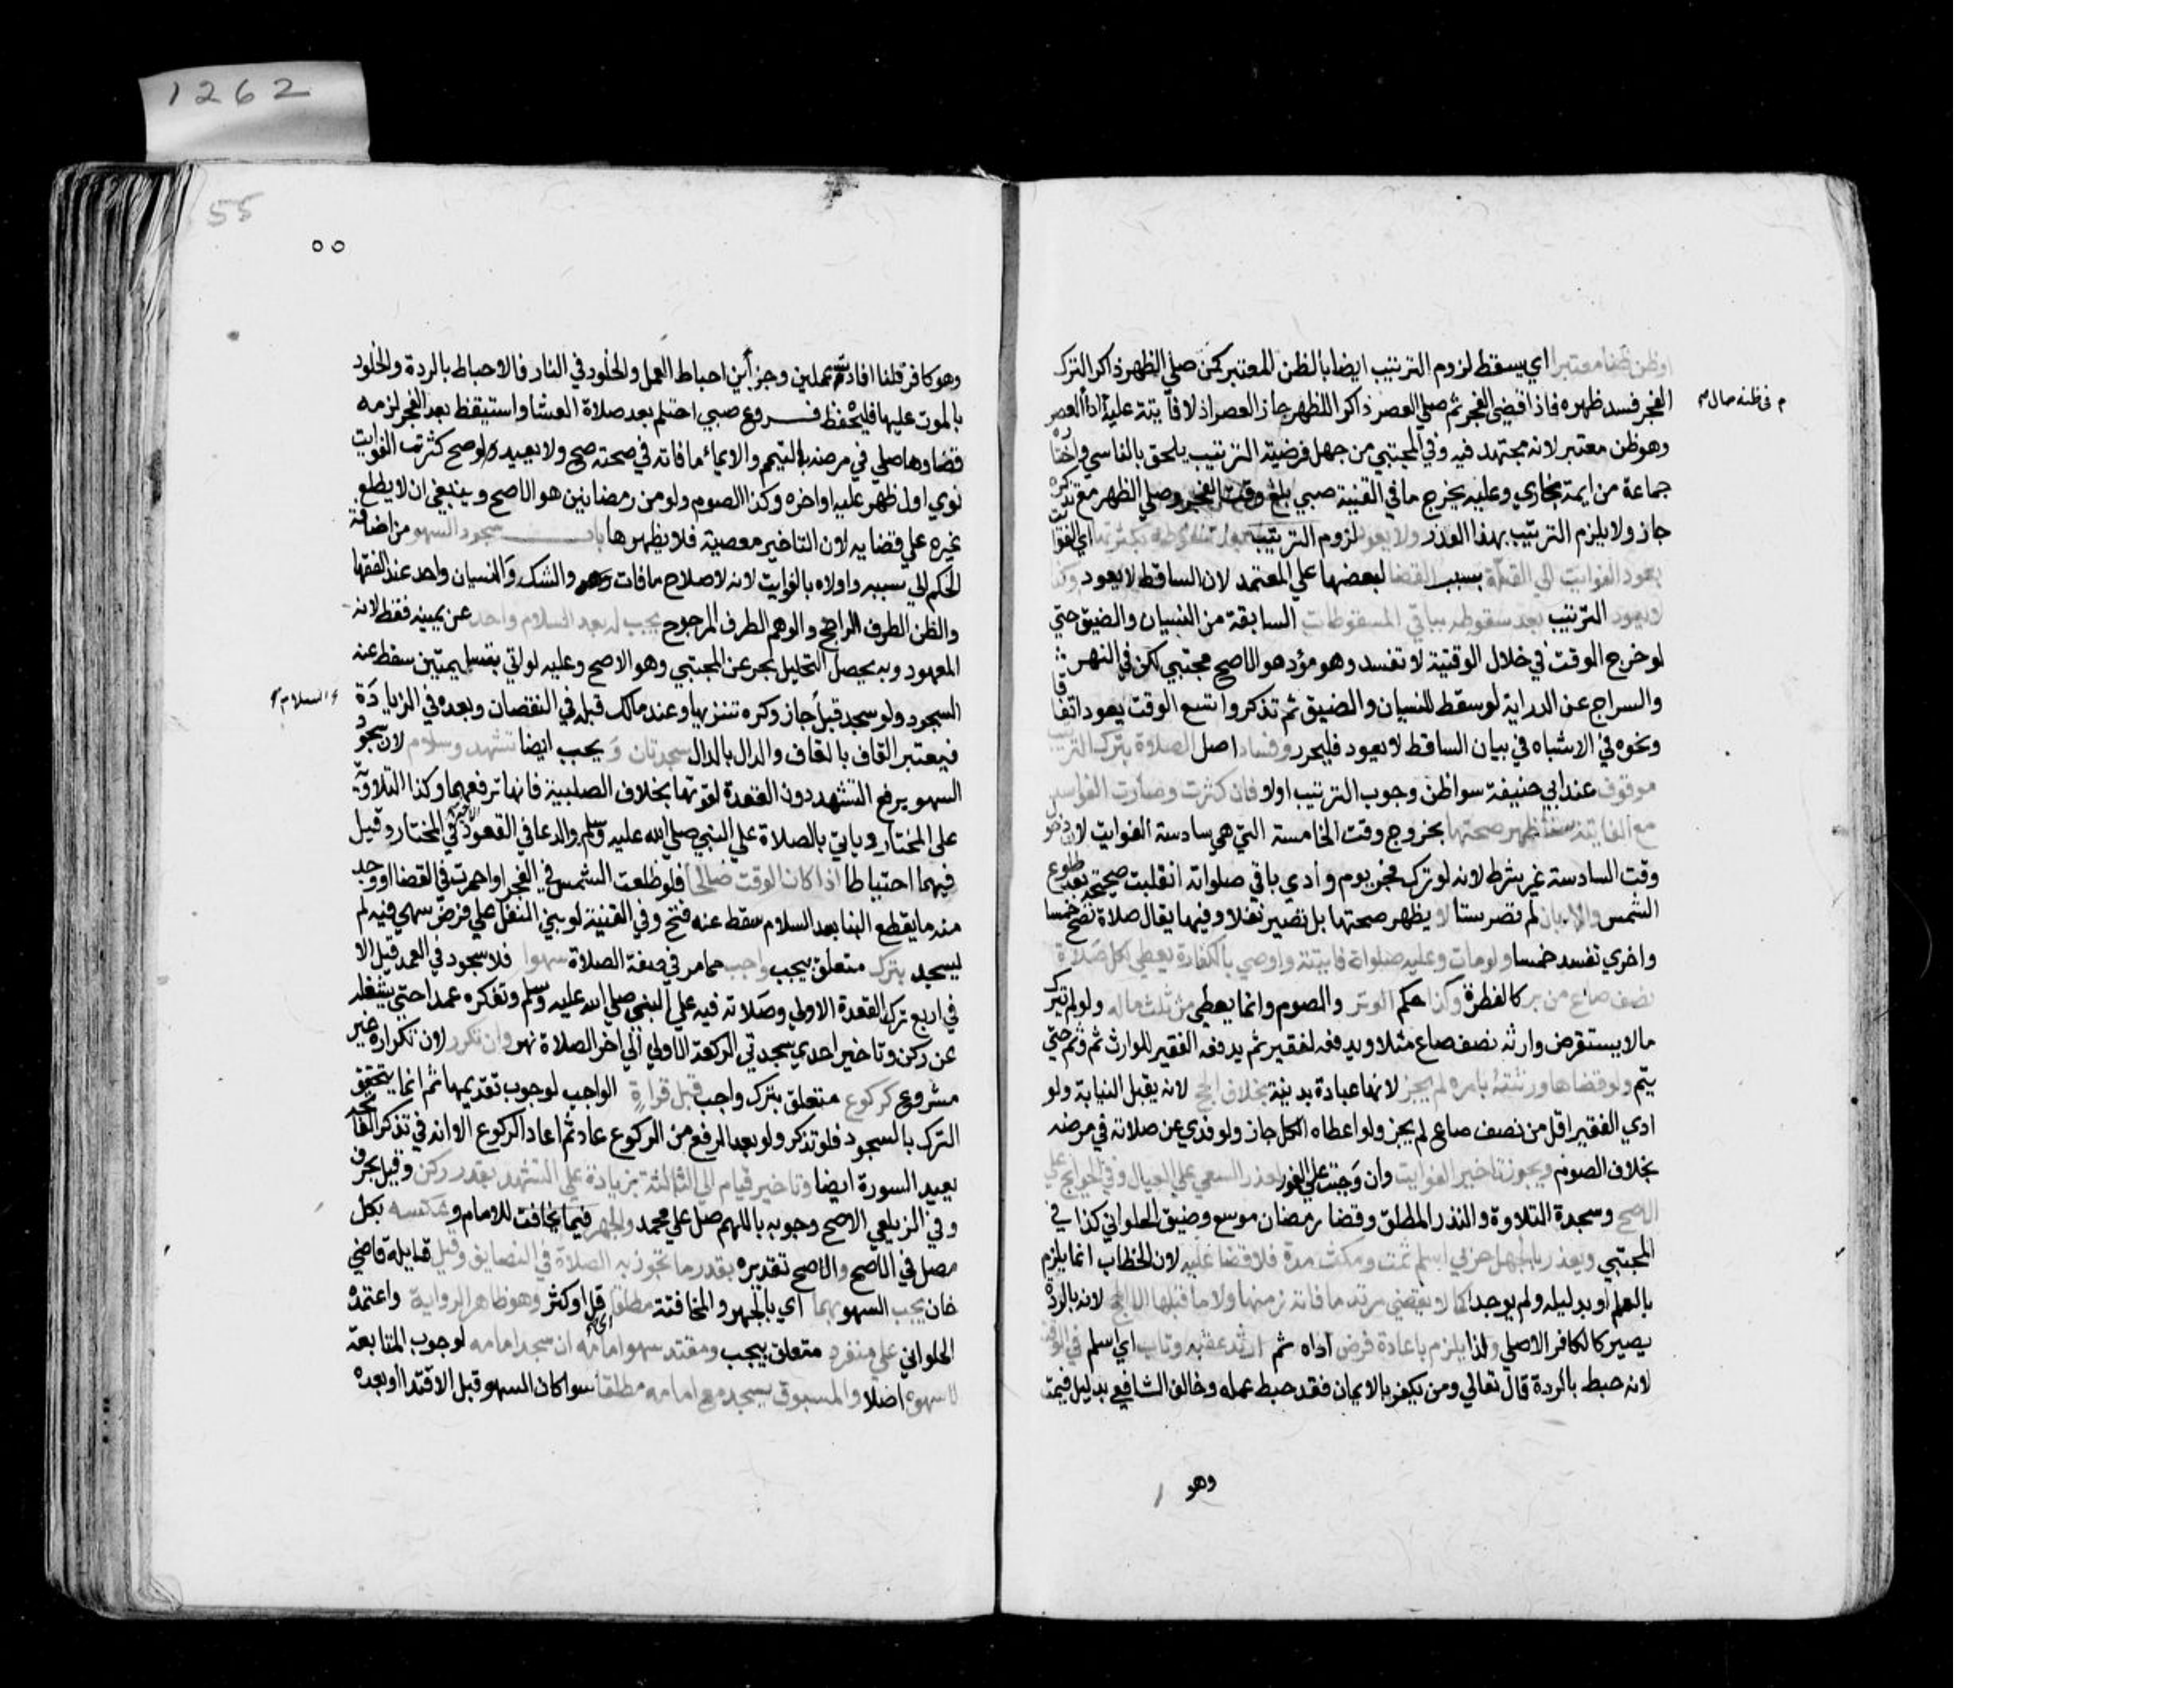 1262
55
٥٥
اوظن ظنا معتبرا اي يسقط لزوم الترتيب ايضا بالظن المعتبر كمن صلي الظهر ذاكرا الترك
الفجر فسد ظهره فاذا قضي الفجر ثم صلي العصر ذاكرا للظهر جاز العصر اذ لا فايتة عليه اداء العصر
م في ظنه حال م
وهو ظن معتبر لانه مجتهد فيه وفي المجتبي من جهل فرضية الترتيب يلحق بالناسي واختاره
جماعة من ايمة بخاري وعليه يخرج ما في القنية صبي بلغ وقت الفجر وصلي الظهر مع تذكره
جاز ولا يلزم الترتيب بهذا العذر ولا يعود لزوم الترتيب بعد سقوطه بكثرتها اي الفوايت
بعود الفوايت الي القلة بسبب القضا لبعضها علي المعتمد لان الساقط لا يعود وكذا
لا يعود الترتيب بعد سقوطه بباقي المسقوطات السابقة من النسيان والضيق حتي
لو خرج الوقت في خلال الوقتية لا تفسد وهو مؤد هو الاصح مجتبي لكن في النهر
والسراج عن الدراية لو سقط للنسيان والضيق ثم تذكر واتسع الوقت يعود اتفاقا
ونحوه في الاشباه في بيان الساقط لا يعود فليحرر وفساد اصل الصلاة بترك الترتيب
موقوف عند ابي حنيفة سوا ظن وجوب الترتيب اولا فان كثرت وصارت الفواسد
مع الفايتة ستا ظهر صحتها بخروج وقت الخامسة التي هي سادسة الفوايت لان دخول
وقت السادسة غير شرط لانه لو ترك فجر يوم وادي باقي صلواته انقلبت صحيحة بعد طلوع
الشمس والا بان لم تصر ستا لا يظهر صحتها بل تصير نفلا وفيها يقال صلاة تصح خمسا
واخري تفسد خمسا ولو مات وعليه صلواة فايتة واوصي بالكفارة يعطي لكل صلاة
نصف صاع من بر كالفطرة وكذا حكم الوتر والصوم وانما يعطي من ثلث ماله ولو لم يترك
مالا يستقرض وارثه نصف صاع مثلا ويدفعه لفقير ثم يدفعه الفقير للوارث ثم وثم حتي
يتم ولو قضاها ورثته بامره لم يجز لانها عبادة بدنية بخلاف الحج لانه يقبل النيابة ولو
ادي الفقير اقل من نصف صاع لم يجز ولو اعطاه الكل جاز ولو فدي عن صلاته في مرضه
بخلاف الصوم ويجوز تاخير الفوايت وان وجبت علي الفور لعذر السعي علي العيال وفي الحوايج علي
الاصح وسجدة التلاوة والنذر المطلق وقضا رمضان موسع وضيق الحلواني كذا في
المجتبي ويعذر بالجهل حربي اسلم ثمت ومكث مدة فلا قضا عليه لان الخطاب انما يلزم
بالعلم او بدليله ولم يوجدا كما لا يقضي مرتد ما فاته زمنها ولا ما قبلها الا الحج لانه بالردة
يصير كالكافر الاصلي ولذا يلزم باعادة فرض اداه ثم ارتد عقبه وتاب اي اسلم في الوقت
لانه حبط بالردة قال تعالي ومن يكفر بالايمان فقد حبط عمله وخالف الشافعي بدليل فيمت
وهو
وهو كافر قلنا افادت عملين وجزأين احباط العمل والخلود في النار فالاحباط بالردة والخلود
بالموت عليها فليحفظ فروع صبي احتلم بعد صلاة العشا واستيقظ بعد الفجر لزمه
قضاوها صلي في مرضه بالتيمم والايماء ما فاته في صحته صح ولا يعيده لو صح كثرت الفوايت
نوي اول ظهر عليه او اخره وكذا الصوم ولو من رمضانين هو الاصح وينبغي ان لا يطلع
غيره علي قضايه لان التاخير معصية فلا يظهرها باب سجود السهو من اضافة
الحكم الي سببه واولاه بالفوايت لانه لاصلاح ما فات وهو والشك والنسيان واحد عند الفقها
والظن الطرف الراجح والوهم الطرف المرجوح يجب له بعد السلام واحد عن يمينه فقط لانه
المعهود وبه يحصل التحليل بحر عن المجتبي وهو الاصح وعليه لو اتي بتسليمتين سقط عنه
السجود ولو سجد قبل جاز وكره تنزيها وعند مالك قبله في النقصان وبعده في الزيادة
السلام
فيعتبر القاف بالقاف والدال بالدال سجدتان و يجب ايضا تشهد وسلام لان سجود
السهو يرفع التشهد دون القعدة لقوتها بخلاف الصلبية فانها ترفعهما وكذا التلاوية
علي المختار وياتي بالصلاة علي النبي صلي الله عليه وسلم والدعا في القعود الاخير في المختار وقيل
فيهما احتياطا اذا كان الوقت صالحا فلو طلعت الشمس في الفجر او احمرت في القضا او وجد
منه ما يقطع البنا بعد السلام سقط عنه فتح وفي القنية لو بني النفل علي فرض سهي فيه لم
يسجد بترك متعلق بيجب واجب مما مر في صفة الصلاة سهوا فلا سجود في العمد قيل الا
في اربع ترك القعدة الاولي وصلاته فيه علي النبي صلي الله عليه وسلم وتفكره عمدا حتي يشغله
عن ركن وتاخير احدي سجدتي الركعة الاولي الي اخر الصلاة نهر وان تكرر لان تكراره غير
مشروع كركوع متعلق بترك واجب قبل قراءة الواجب لوجوب تقديمها ثم انما يتحقق
الترك بالسجود فلو تذكر ولو بعد الرفع من الركوع عاد ثم اعاد الركوع الا انه في تذكر الفاتحة
يعيد السورة ايضا وتاخير قيام الي الثالثة بزيادة علي التشهد بقدر ركن وقيل بحرف
وفي الزيلعي الاصح وجوبه باللهم صل علي محمد والجهر فيما يخافت للامام وعكسه بكل
مصل في الاصح والاصح تقديره بقدر ما تجوز به الصلاة في الفصلين وقيل قايله قاضي
خان يجب السهو بهما اي بالجهر والمخافتة مطلقا قل او كثر وهو ظاهر الرواية واعتمده
الحلواني علي منفرد متعلق بيجب ومقتد بسهو امامه ان سجد امامه لوجوب المتابعة
لا سهوه اصلا والمسبوق يسجد مع امامه مطلقا سوا كان السهو قبل الاقتدا او بعده